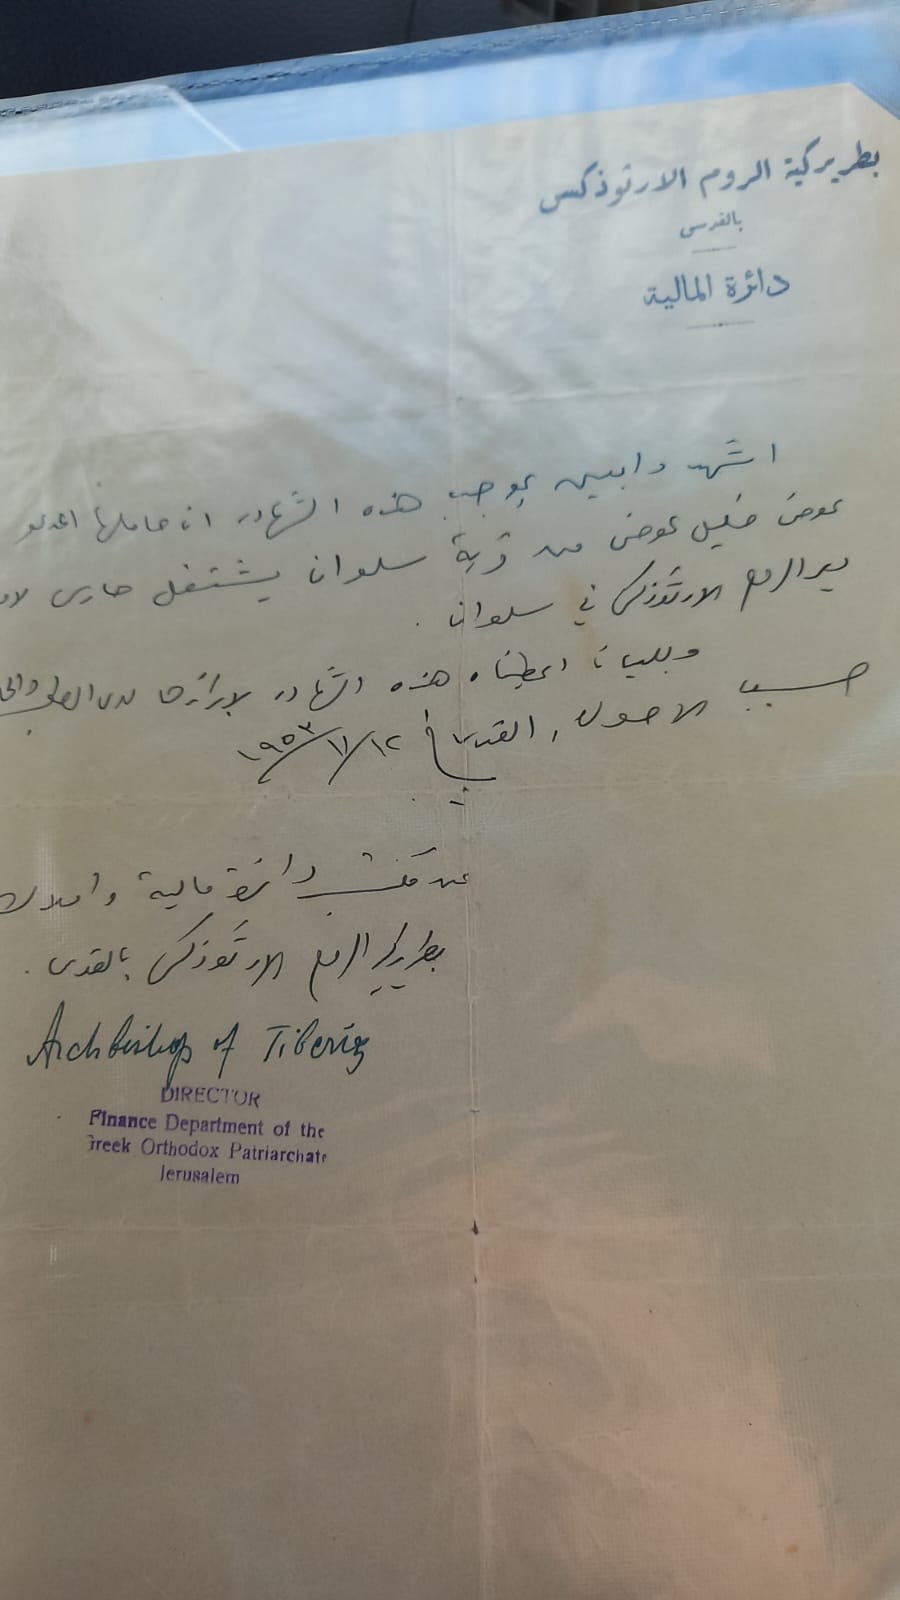 بطريركية الروم الارثوذكس
بالقدس
دائرة المالية
اشهد وابين بموجب هذه الشهادة ان حاملها المدعو
عوض خليل عوض من قرية سلوان يشتغل حارس
دير الروم الارثوذكس في سلوان .
وبيانا اعطيناه هذه الشهادة لابرازها لدى
حسب الاصول , القدس في ١٢/١١/١٩٥٣
عن مكتب دائرة مالية واملاك
بطريركية الروم الارثوذكس بالقدس .
Archbishop of Tiberias
DIRECTOR
Finance Department of the
Greek Orthodox Patriarchate
Jerusalem